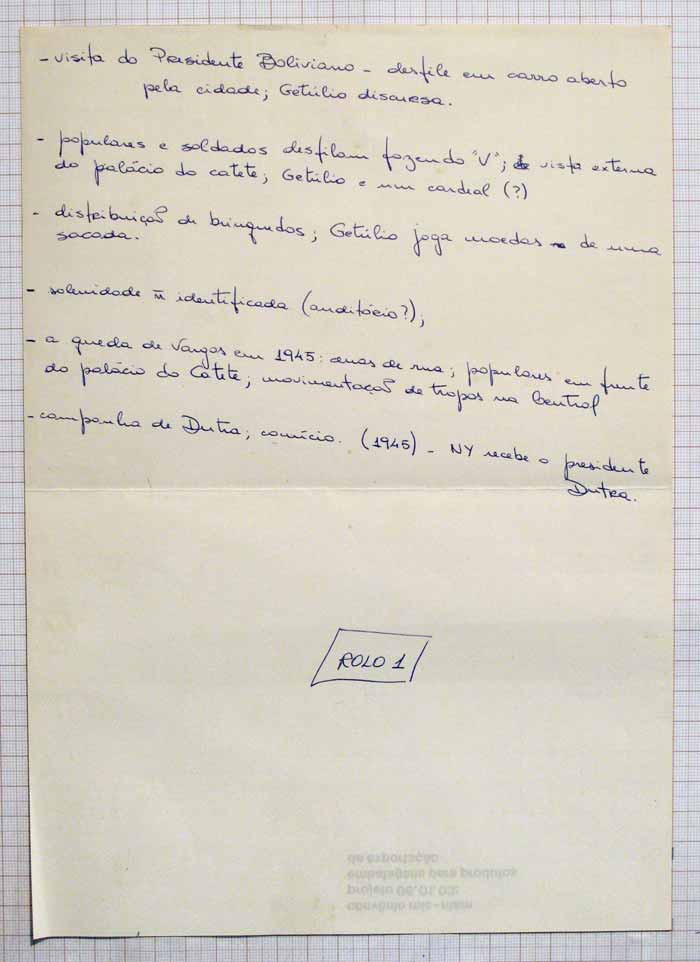 - visita do Presidente Boliviano - desfile em carro aberto
pela cidade; Getúlio discursa.
- populares e soldados desfilam fazendo "V"; vista externa
do palácio do catete; Getúlio e um cardeal (?)
- distribuição de brinquedos; Getúlio joga moedas de uma
sacada.
- solenidade ñ identificada (auditório?);
- a queda de Vargas em 1945: cenas de rua; populares em frente
do palácio do Catete; movimentação de tropas na Central
- campanha de Dutra; comício. (1945) - NY recebe o presidente
Dutra.
ROLO 1
de exportação
embalagens para produtos
projeto 06.01.03:
convênio mic - mam